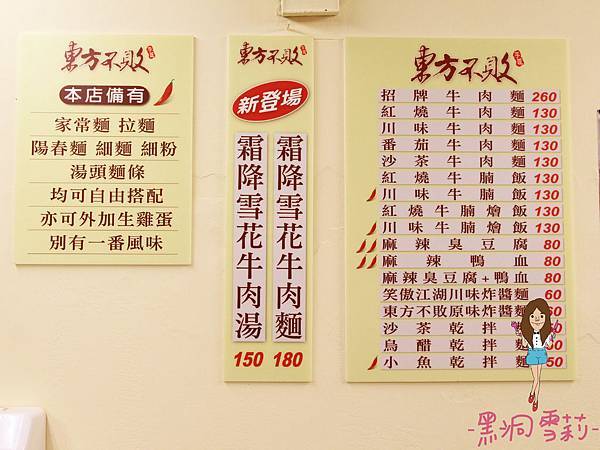 東方不敗
本店備有
家常麵 拉麵
陽春麵 細麵 細粉
湯頭麵條
均可自由搭配
亦可外加生雞蛋
別有一番風味
東方不敗
新登場
霜降雪花牛肉麵 180
霜降雪花牛肉湯 150
東方不敗
招牌牛肉麵 260
紅燒牛肉麵 130
川味牛肉麵 130
番茄牛肉麵 130
沙茶牛肉麵 130
紅燒牛腩飯 130
川味牛腩飯 130
紅燒牛腩燴飯 130
川味牛腩燴飯 130
麻辣臭豆腐 80
麻辣鴨血 80
麻辣臭豆腐+鴨血 80
笑傲江湖川味炸醬麵 60
東方不敗原味炸醬麵 60
沙茶乾拌麵
烏醋乾拌麵
小魚乾拌麵 50
-黑洞雪莉-